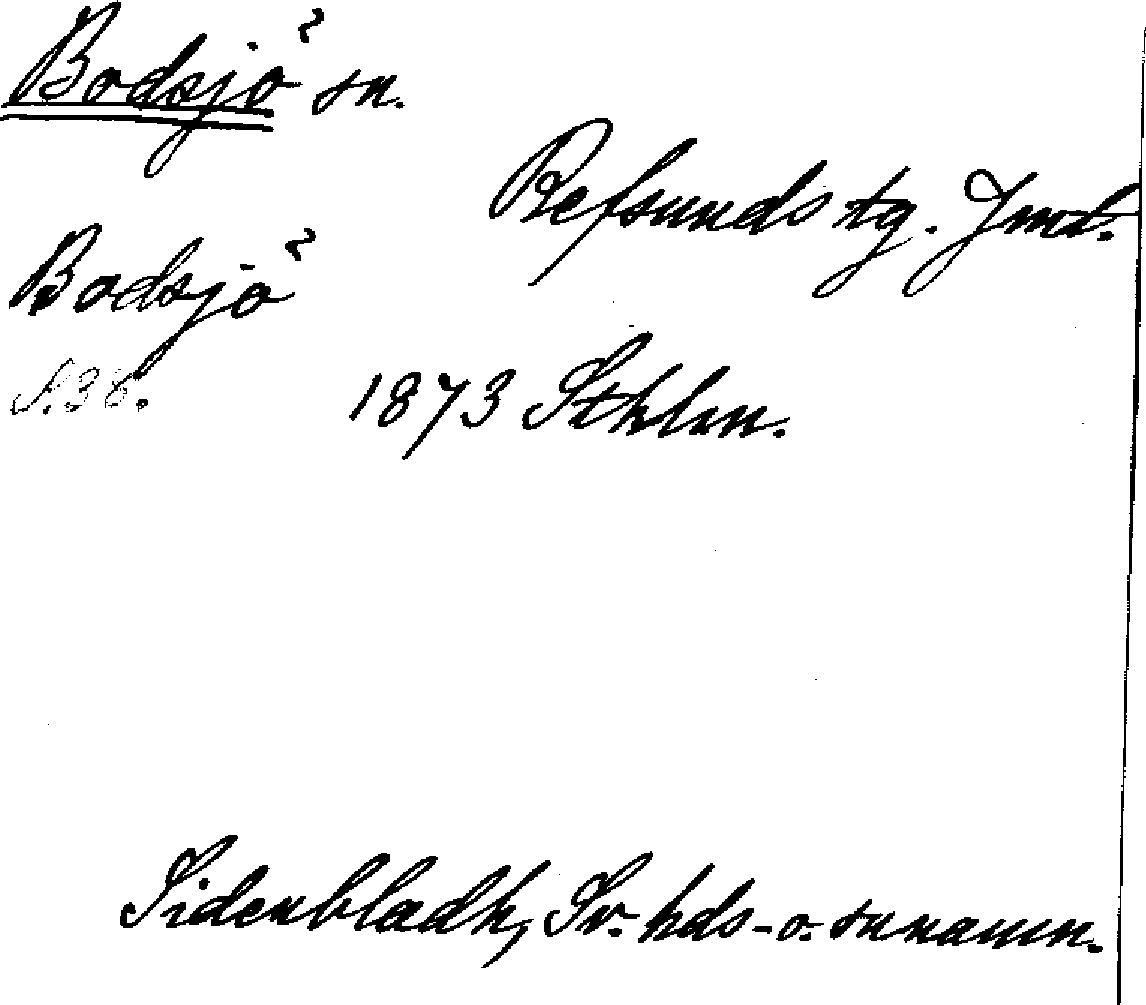 Bodsjö sn.
Refsunds tg. Jmt.
Bodsjö
S. 38.
1873 Sthlm.
Sidenbladh, Sv. hds- o. snnamn.